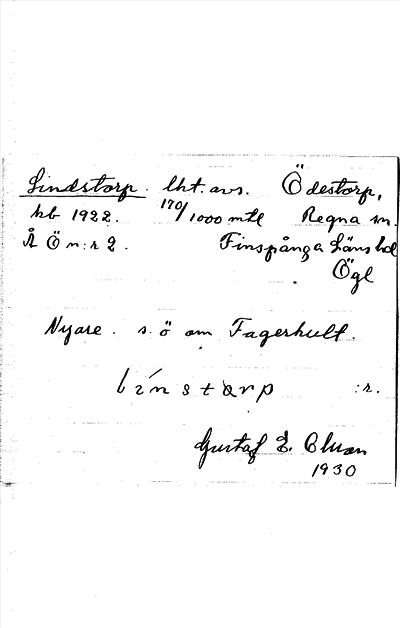 Lindstorp. lht. avs. Ödestorp,
hb 1922. 170/1000 mtl Regna sn.
Å Ö n:r 2. Finspånga läns hd
Ögl
Nyare. s. ö om Fagerhult.
linstårp :r.
Gustaf E.
1930